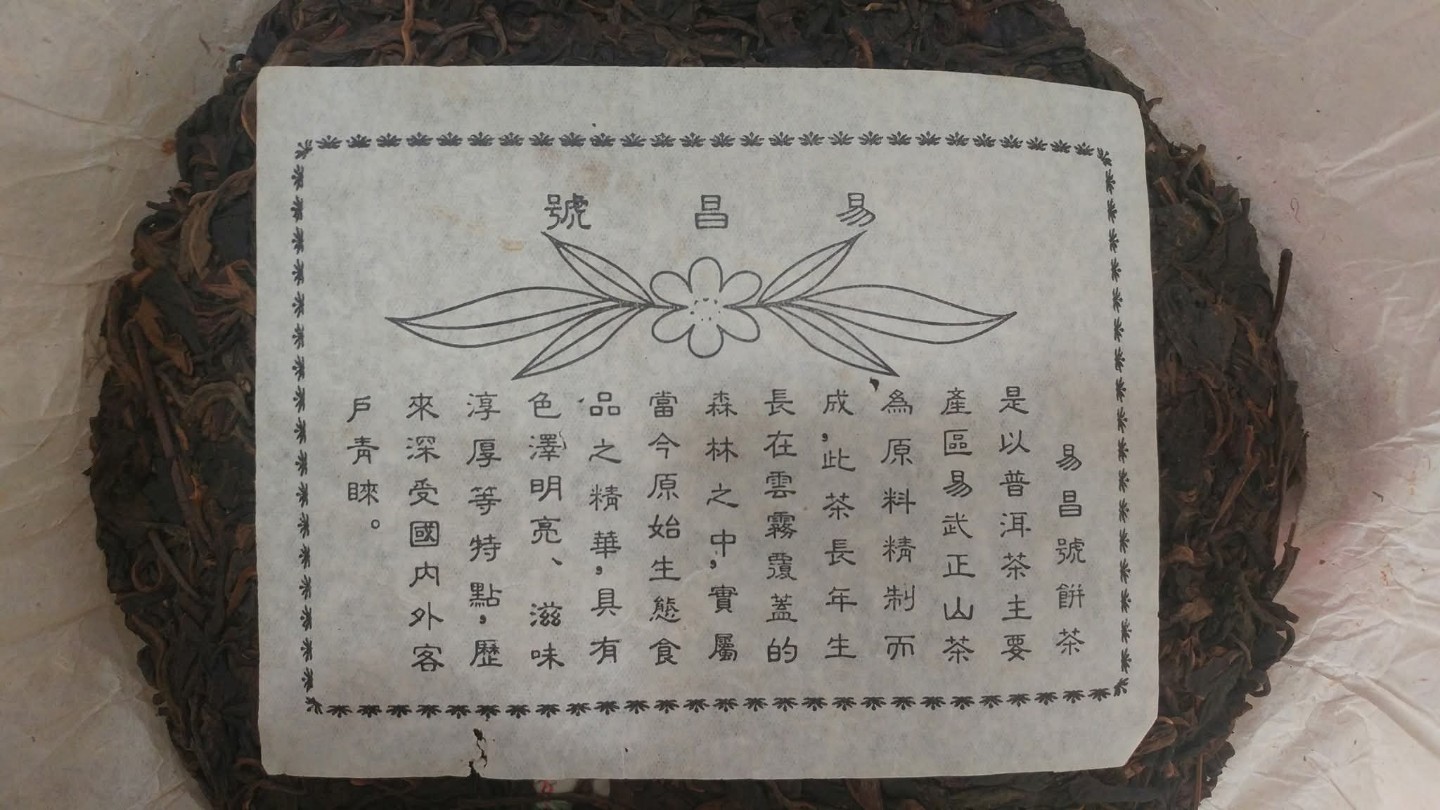 易昌號
易昌號餅茶
是以普洱茶主要
產區易武正山茶
為原料精制而
成，此茶長年生
長在雲霧覆蓋的
森林之中，實屬
當今原始生態食
品之精華，具有
色澤明亮、滋味
淳厚等特點，歷
來深受國內外客
戶青睞。